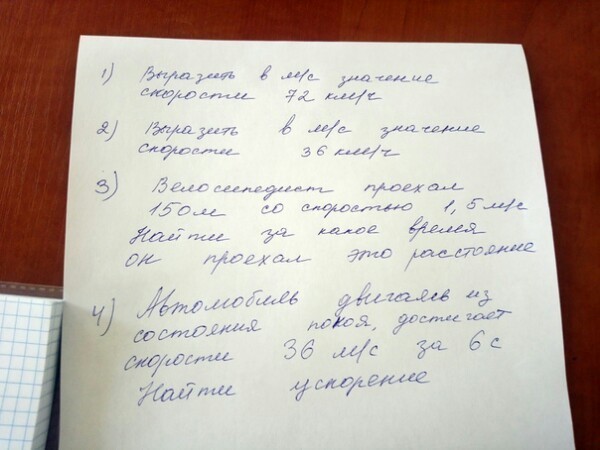 1) Выразить в м/с значение
скорости 72 км/ч
2) Выразить в м/с значение
скорости 36 км/ч
3) Велосипедист проехал
150м со скоростью 1,5 м/с
Найти за какое время
он проехал это расстояние
4) Автомобиль двигаясь из
состояния покоя, достигает
скорости 36 м/с за 6 с
Найти ускорение